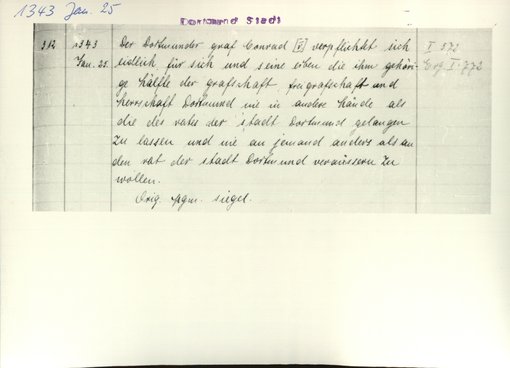 1343 Jan. 25
Dortmund Stadt
312 1343 Der Dortmunder graf Conrad [V] verpflichtet sich I 572
Jan. 25. eidlich für sich und seine erben die ihm gehöri- Erg. I. 772
ge hälfte der grafschaft, freigrafschaft und
herrschaft Dortmund nie in andere hände als
die des rates der stadt Dortmund gelangen
zu lassen und nie an jemand anders als an
den rat der stadt Dortmund veräussern zu
wollen.
Orig. pgm. siegel.